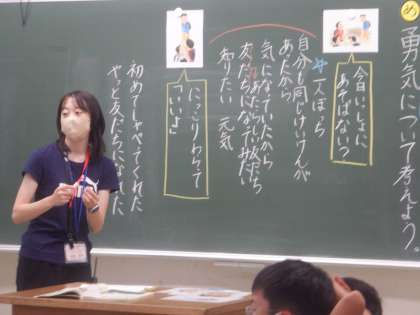 め
勇気について考えよう。
今日いっしょに
あそばない?
一人ぼっち
自分も同じけいけんが
あったから
気になっていたから
あたらしい友だち
友だちになってみたい
知りたい 元気
にっこりわらって
「いいよ」
初めてしゃべてくれた
やっと友だちになれた